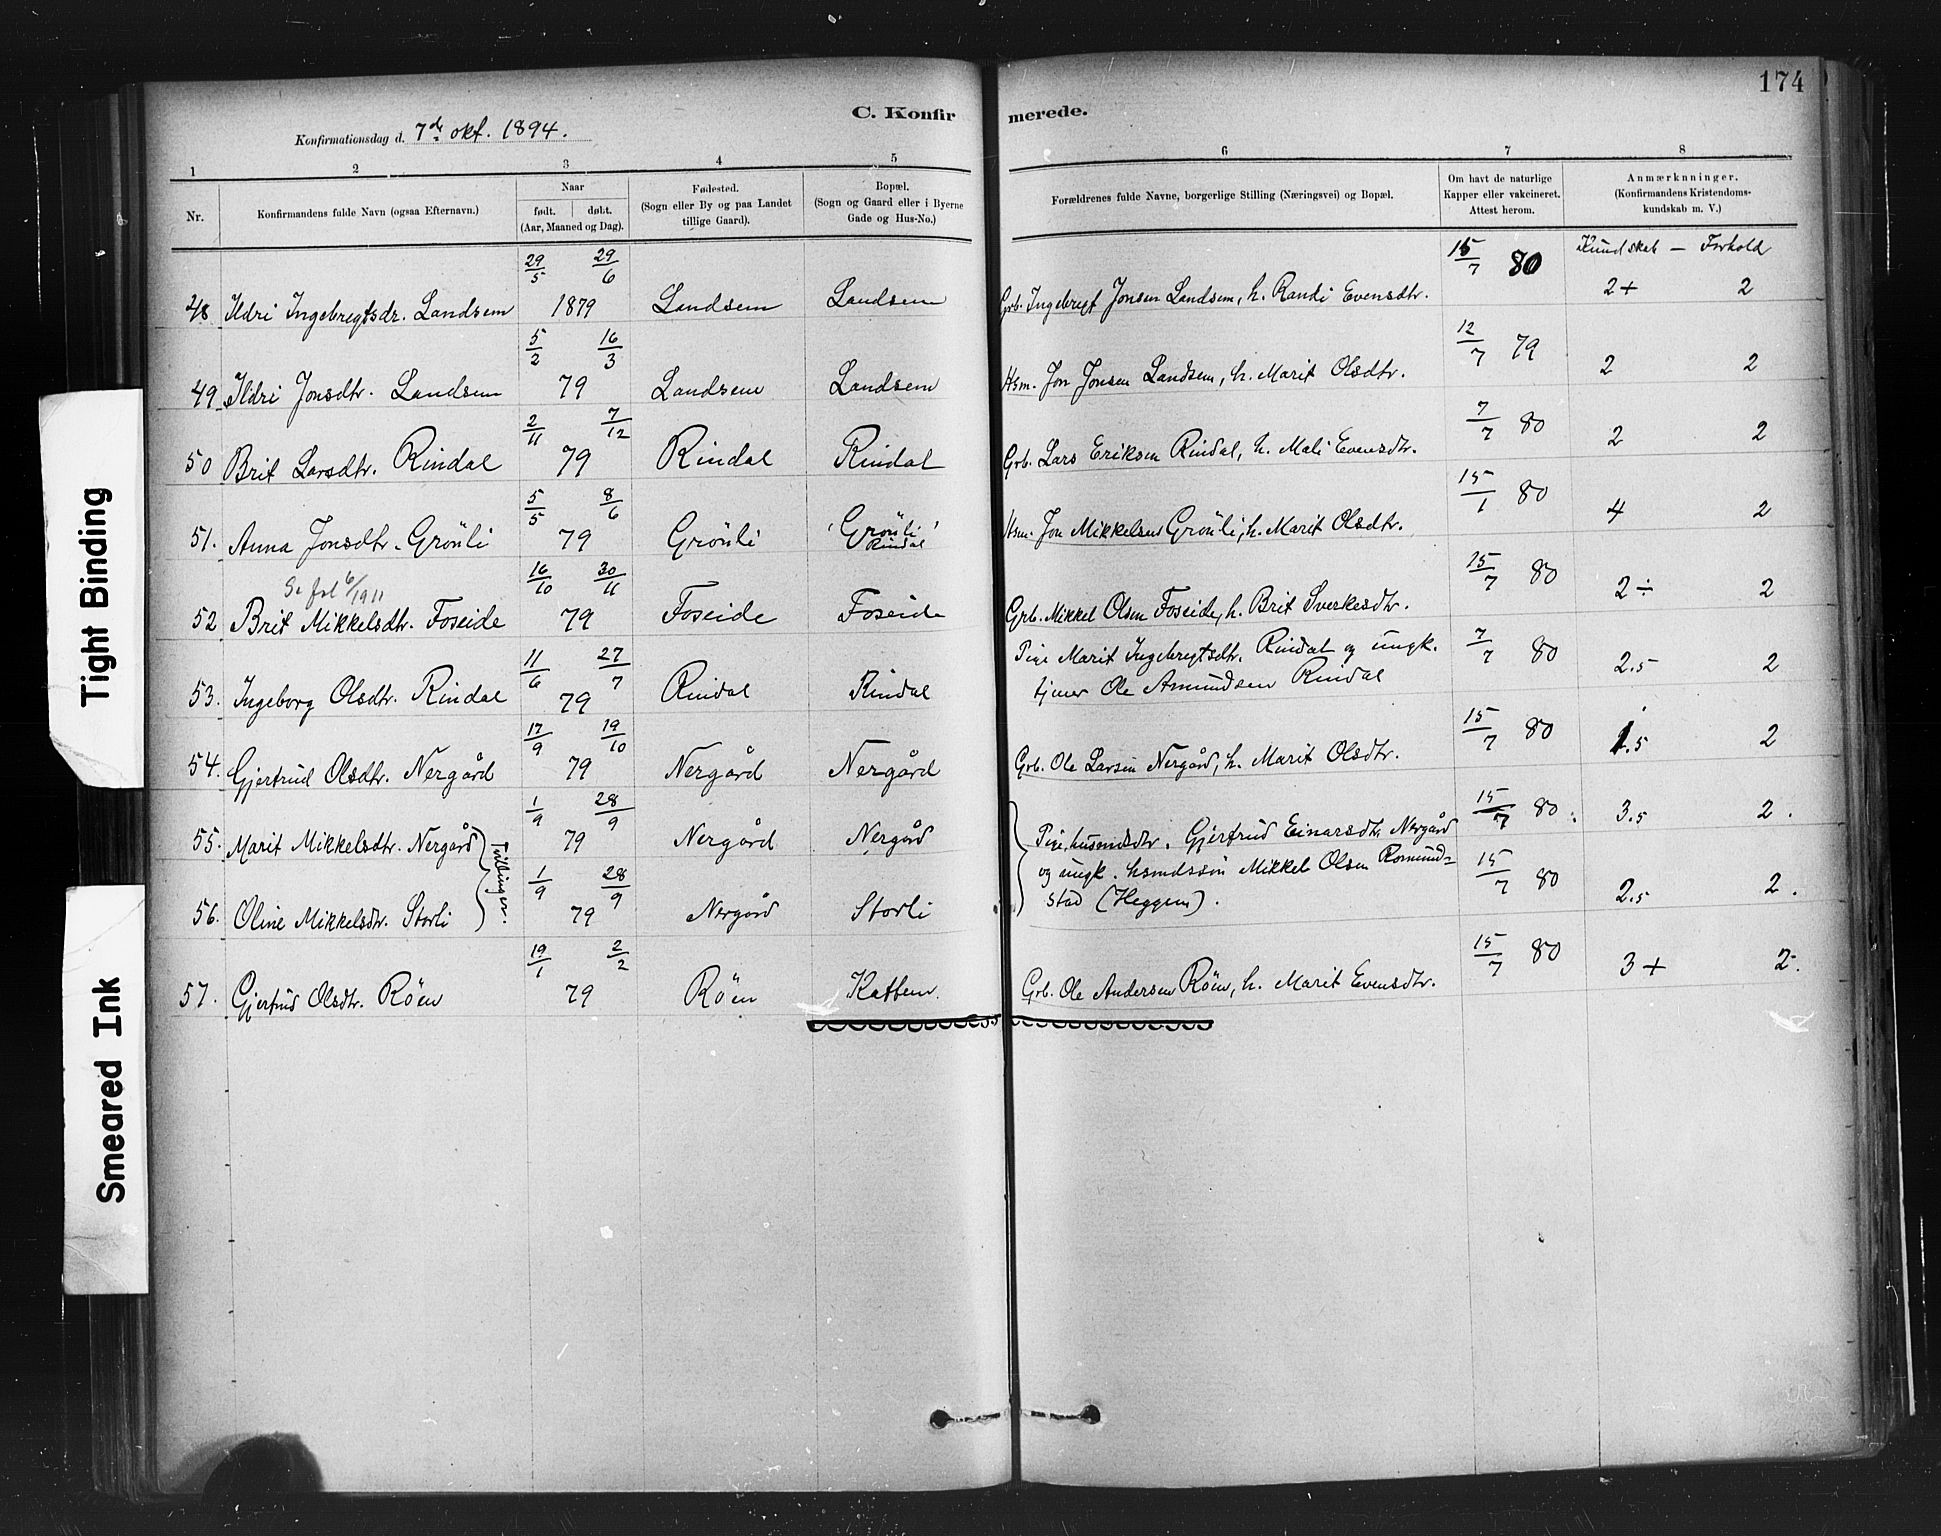 174
C. Konfirmerede.
Konfirmationsdag d. 7de okt. 1894.
1 2 3 4 5 6 7 8
Nr.
Konfirmandens fulde Navn (ogsaa Efternavn.)
Naar
født. | døbt.
(Aar, Maaned og Dag).
Fødested.
(Sogn eller By og paa Landet
tillige Gaard).
Bopæl.
(Sogn og Gaard eller i Byerne
Gade og Hus-No.)
Forældrenes fulde Navne, borgerlige Stilling (Næringsvei) og Bopæl.
Om havt de naturlige
Kapper eller vakcineret.
Attest herom.
Anmærknninger.
(Konfirmandens Kristendoms-
kundskab m. V.)
Kundskab — Forhold
29/5 29/6 15/7 80
48 Ildri Ingebregtsdr. Landsem 1879 Landsem Landsem Grb. Ingebregt Jonsen Landsem, h. Randi Evensdtr. 2+ 2
5/2 16/3 12/7 79
49. Ildri Jonsdtr. Landsem 79 Landsem Landsem Hsm. Jon Jonsen Landsem, h. Marit Olsdtr. 2 2
2/11 7/12 7/7 80
50 Brit Larsdtr. Rindal 79 Rindal Rindal Grb. Lars Eriksen Rindal, h. Mali Evensdtr. 2 2
5/5 8/6 15/1 80
51. Anna Jonsdtr. Grönli 79 Grönli Grönli Hsm. Jon Mikkelsen Grönli, h. Marit Olsdtr. 4 2
Rindal
Se fsl 6/1911
16/10 30/11 15/7 80
52 Brit Mikkelsdtr. Foseide 79 Foseide Foseide Grb. Mikkel Olsen Foseide, h. Brit Sverkesdtr. 2÷ 2
11/6 27/7 Pige Marit Ingebregtsdtr. Rindal og ungk. 7/7 80
53. Ingeborg Olsdtr. Rindal 79 Rindal Rindal tjener Ole Amundsen Rindal 2.5 2
17/9 19/10 15/7 80
54. Gjertrud Olsdtr. Nergård 79 Nergård Nergård Grb. Ole Larsen Nergård, h. Marit Olsdtr. 1.5 2
1/9 28/9 15/7 80.
55. Marit Mikkelsdtr. Nergård 79 Nergård Nergård Pige, husmdsdtr. Gjertrud Einarsdtr. Nergård 3.5 2.
Tvillinger.
1/9 28/9 og ungk. hsmdssön Mikkel Olsen Romund- 15/7 80
56. Oline Mikkelsdtr. Storli 79 Nergård Storli stad (Heggem). 2.5 2.
19/1 2/2 15/7 80
57. Gjertrud Olsdtr. Röen 79 Röen Kattem. Grb. Ole Andersen Röen, h. Marit Evensdtr. 3+ 2-.
Tight Binding
Smeared Ink